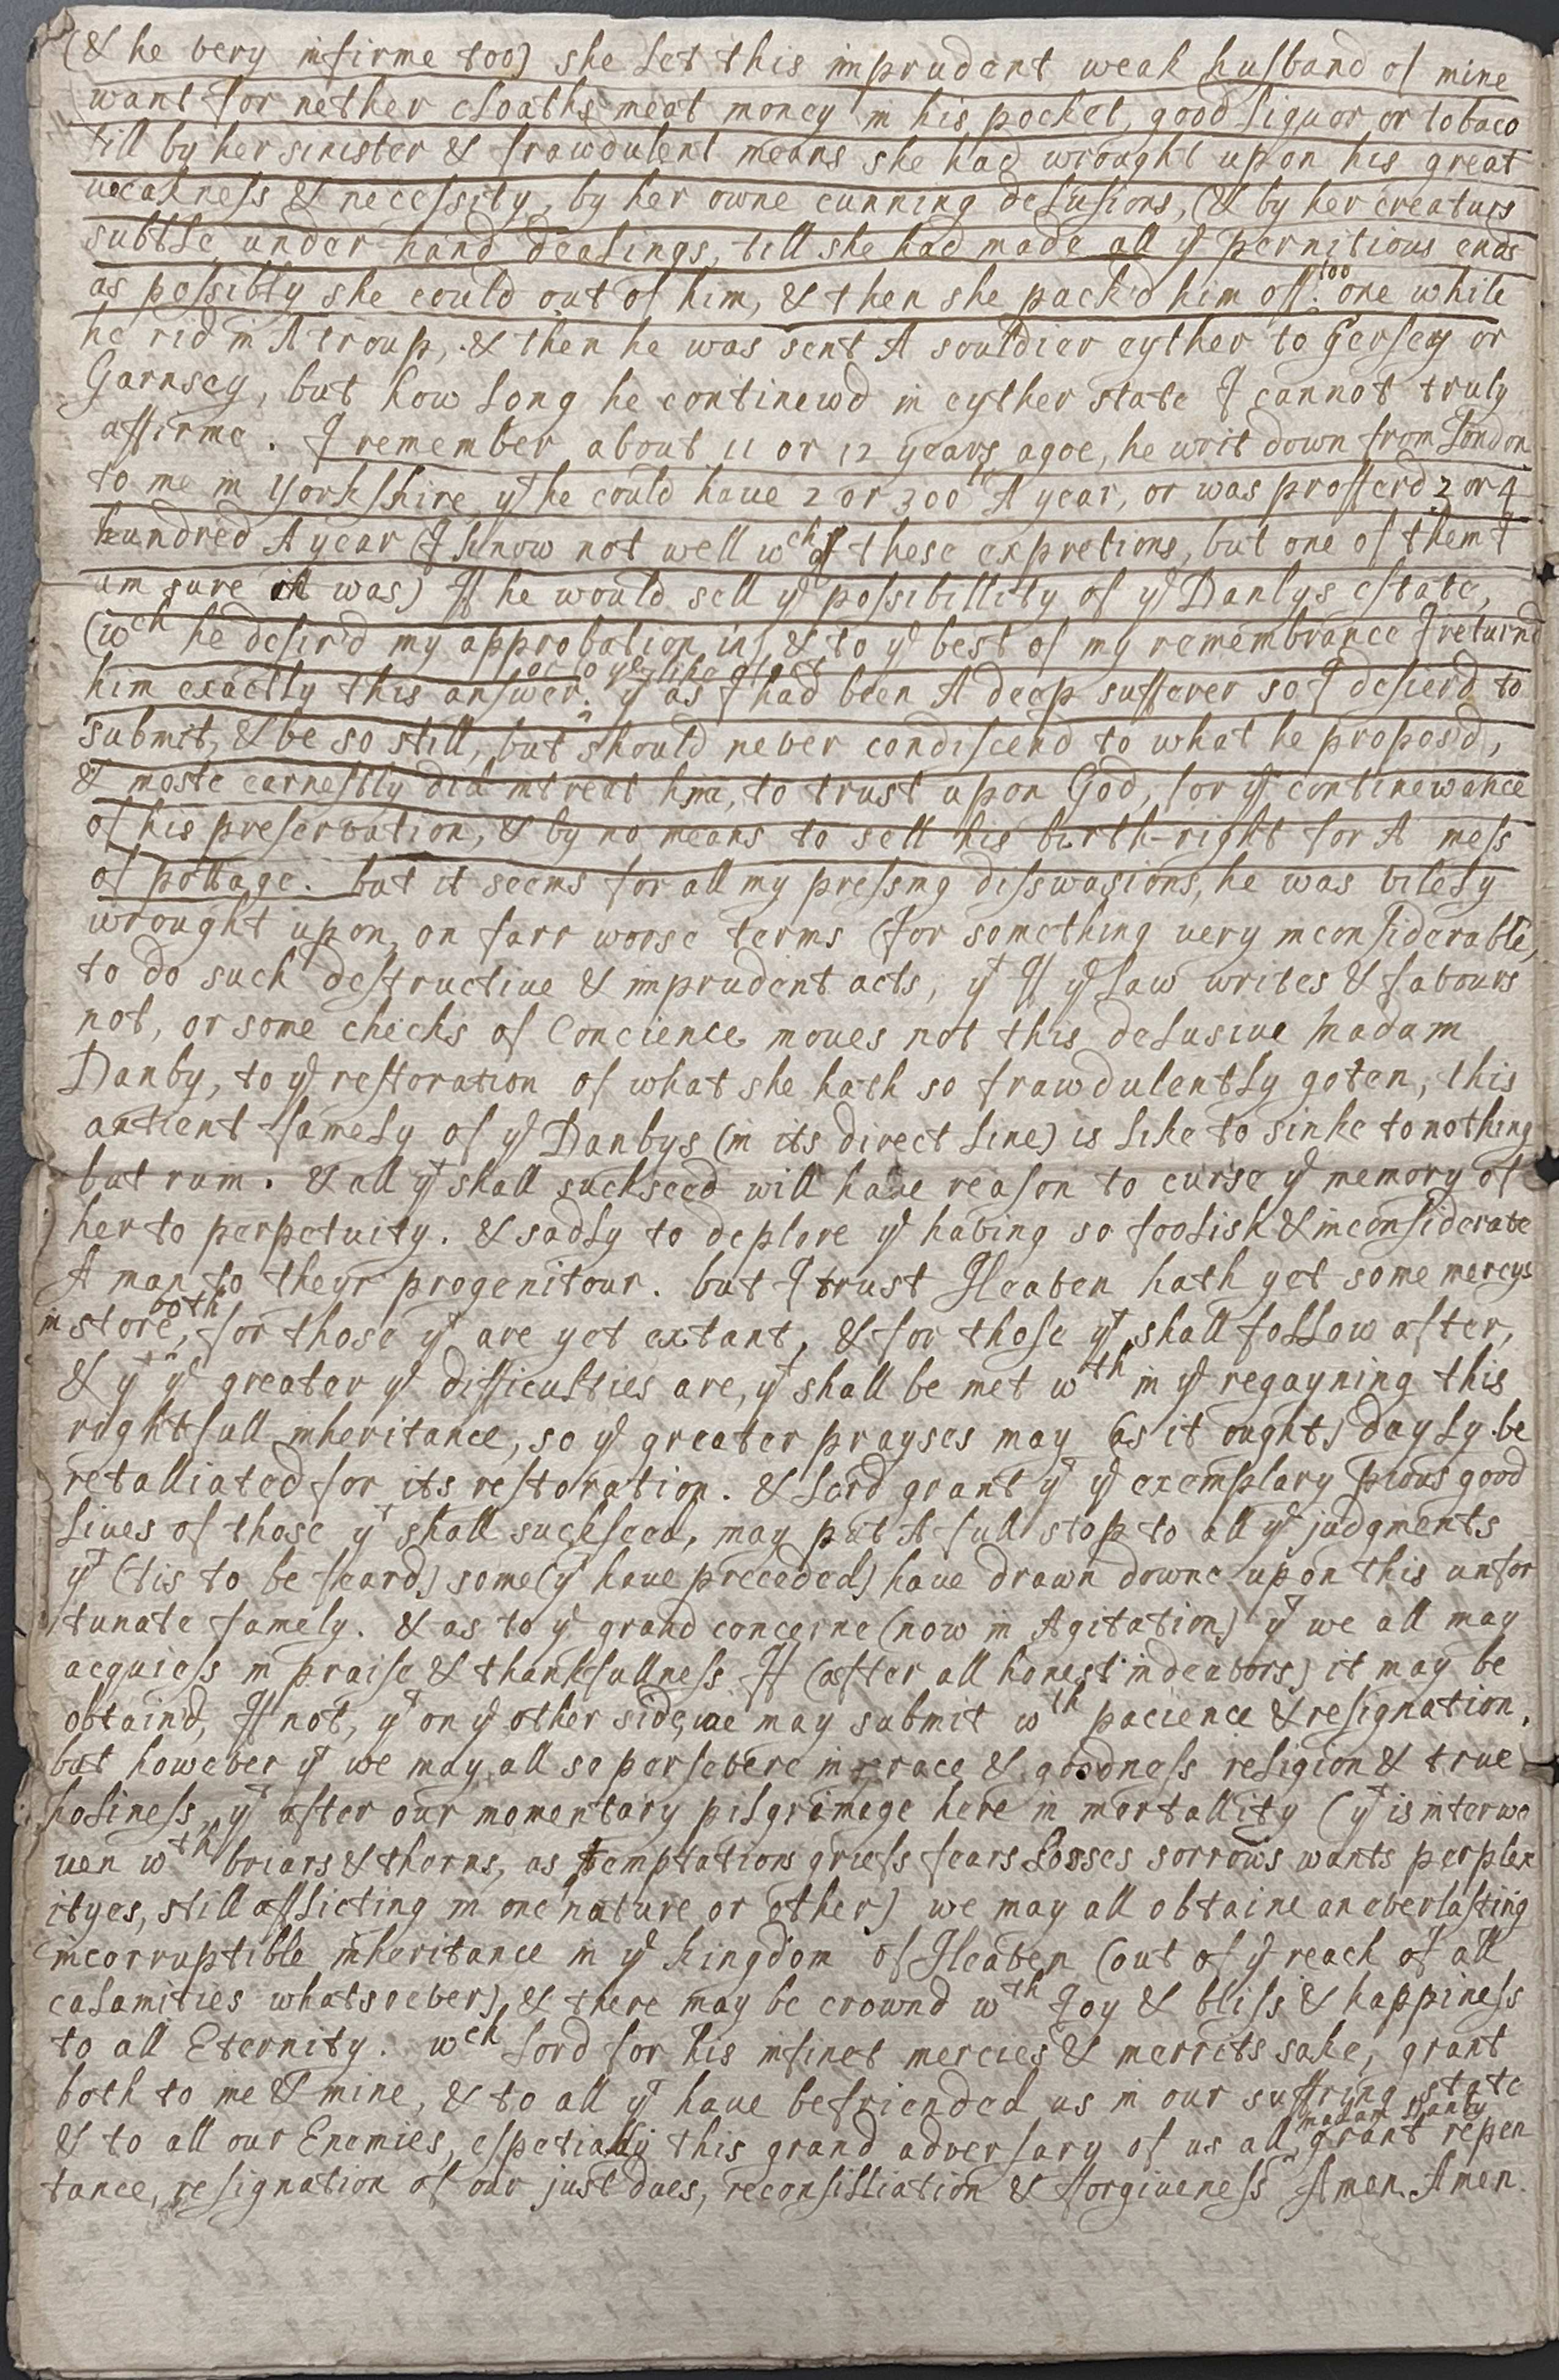 (& he very infirme too) she let this imprudent weak husband of mine
want for nether cloaths meat money in his pocket, good liquor or tobaco
till by her sinister & frawdulent means she had wrought upon his great
weakness & necessity, by her owne cunning delusions, (& by her creaturs
subtle under-hand dealings, till she had made all yᵉ pernitious ends
as possibly she could out of him, & then she pack'd him off too. one while
he rid in A troup, & then he was sent A souldier eyther to Gersey or
Garnsey, but how long he continewd in eyther state I cannot truly
affirme. I remember about 11 or 12 years agoe, he writ down from London
to me in Yorkshire yᵗ he could have 2 or 300ˡˡ A year, or was profferd 3 or 4
hundred A year (I know not well wᶜʰ of these expretions, but one of them I
am sure it was) If he would sell yᵉ possibillity of yᵉ Danbys estate,
(wᶜʰ he desir'd my approbation in) & to yᵉ best of my remembrance I returnd
him exactly this answer, or to yᵉ like efect yᵗ as I had been A deep sufferer so I desierd to
submit, & be so still, but should never condiscend to what he propos'd,
& moste earnestly did intreat him, to trust upon God, for yᵉ continewance
of his preservation, & by no means to sell his birth-right for A mess
of pottage. but it seems for all my pressing disswasions, he was vilely
wrought upon, on farr worse terms (for something very inconsiderable,
to do such destructive & imprudent acts, yᵗ If yᵉ law writes & labours
not, or some checks of Concience moves not this delusive Madam
Danby, to yᵉ restoration of what she hath so frawdulently goten, this
antient famely of yᵉ Danbys (in its direct line) is like to sinke to nothing
but ruin. & all yᵗ shall suckseed will have reason to curse yᵉ memory of
her to perpetuity. & sadly to deplore yᵉ having so foolish & inconsiderate
A man to theyr progenitour. but I trust Heaven hath yet some mercys
in store, both for those yᵗ are yet extant, & for those yᵗ shall follow after,
& yᵗ yᵉ greater yᵉ difficulties are, yᵗ shall be met wᵗʰ in yᵉ regayning this
rightfull inheritance, so yᵉ greater prayses may (as it ought) dayly be
retalliated for its restoration. & Lord grant yᵗ yᵉ exemplary pious good
lives of those yᵗ shall suckseed, may put A full stop to all yᵉ judgments
yᵗ (tis to be feard) some (yᵗ have preceded) have drawn downe upon this unfor
tunate famely. & as to yᵉ grand concerne (now in Agitation) yᵗ we all may
acquiess in praise & thankfullness If (after all honest indeavors) it may be
obtain'd, If not, yᵗ on yᵉ other side, we may submit wᵗʰ pacience & resignation.
but however yᵗ we may all so persevere in grace & goodness religion & true
holiness, yᵗ after our momentary pilgrimage here in mortallity (yᵗ is interwo
ven wᵗʰ briars & thorns, as temptations griefs fears losses sorrows wants perplex
ityes, still aflicting in one nature or other) we may all obtaine an everlasting
incorruptible inheritance in yᵉ kingdom of Heaven (out of yᵉ reach of all
calamities whatsoever), & there may be crownd wᵗʰ Joy & bliss & happiness
to all Eternity. wᶜʰ Lord for his infinet mercies & merrits sake, grant
both to me & mine, & to all yᵗ have befriended us in our suffring state
& to all our Enemies, espetially this grand adversary of us all, madam Danby grant repen
tance, resignation of our just dues, reconsilliation & forgiveness Amen. Amen.